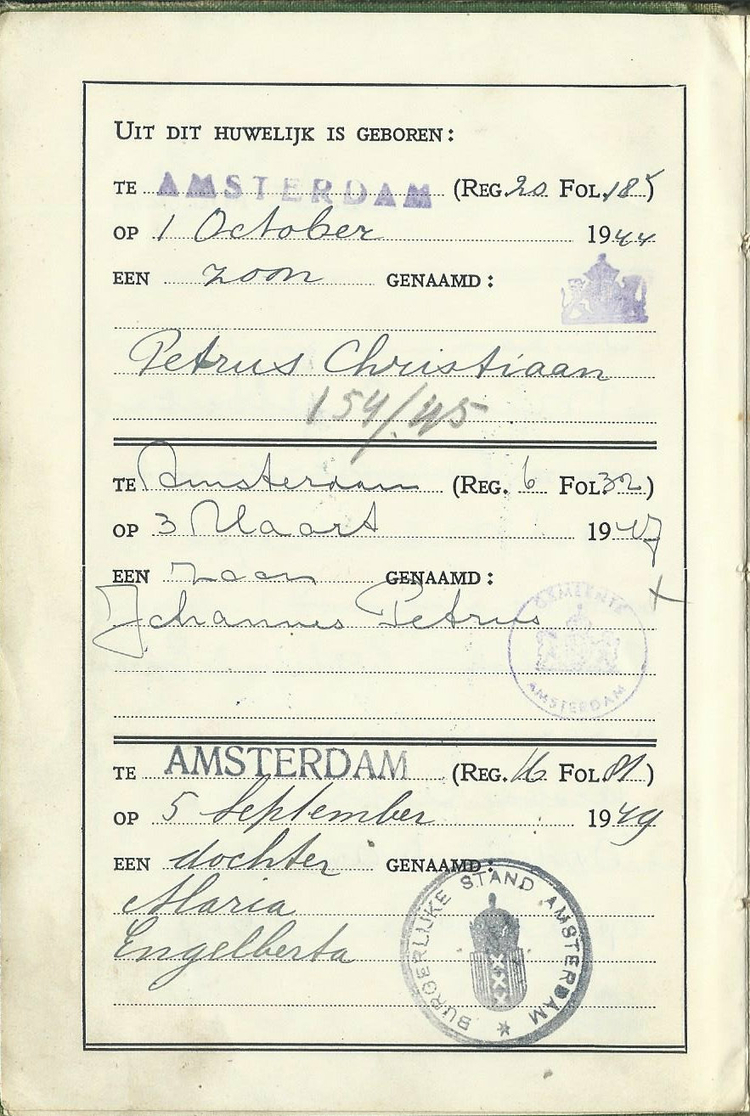 UIT DIT HUWELIJK IS GEBOREN:
TE AMSTERDAM (REG. 20 FOL. 185)
OP 1 October 1944
EEN zoon GENAAMD:
Petrus Christiaan
154/45
TE Amsterdam (REG. 6 FOL. 32)
OP 3 Maart 1947
EEN zoon GENAAMD:
Johannes Petrus
GEMEENTE AMSTERDAM
TE AMSTERDAM (REG. 16 FOL. 81)
OP 5 September 1949
EEN dochter GENAAMD:
Maria
Engelberta
BURGERLIJKE STAND AMSTERDAM
XXX